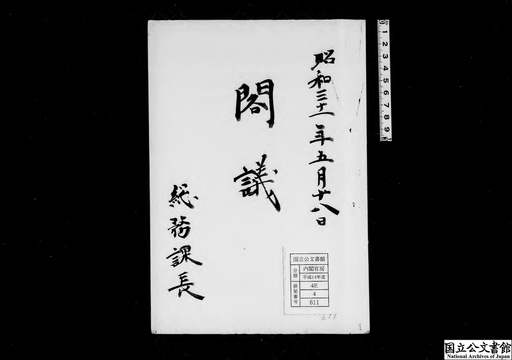 昭和三十一年五月十八日
閣議
総務課長
国立公文書館
分類
内閣官房
平成14年度
4E
排架番号
4
811
811
1 2 3 4 5 6 7 8 9
国立公文書館
National Archives of Japan